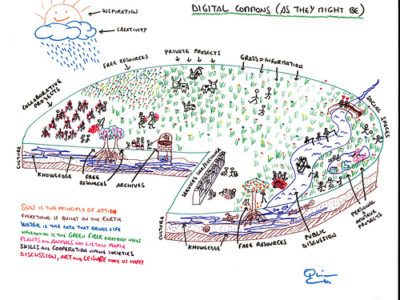 DIGITAL COMMONS (AS THEY MIGHT BE)
INSPIRATION
CREATIVITY
FREE RESOURCES
PRIVATE PROJECTS
GRASS = INFORMATION
COLLABORATIVE
PROJECTS
SOCIAL SPACES
CULTURE
KNOWLEDGE
FREE
RESOURCES
ARCHIVES
CULTURE
KNOWLEDGE
FREE RESOURCES
PUBLIC
DISCUSSION
PERSONAL
PROJECTS
SUN IS THE PRINCIPLE OF ACTION
EVERYTHING IS BUILT ON THE EARTH
WATER IS THE DATA THAT BRINGS LIFE
INFORMATION IS THE GREEN FIBER EVERYBODY USES
PLANTS AND ANIMALS AND ALSO PEOPLE
SKILLS AND COOPERATION
DISCUSSION, ART AND LEISURE MAKE US HAPPY